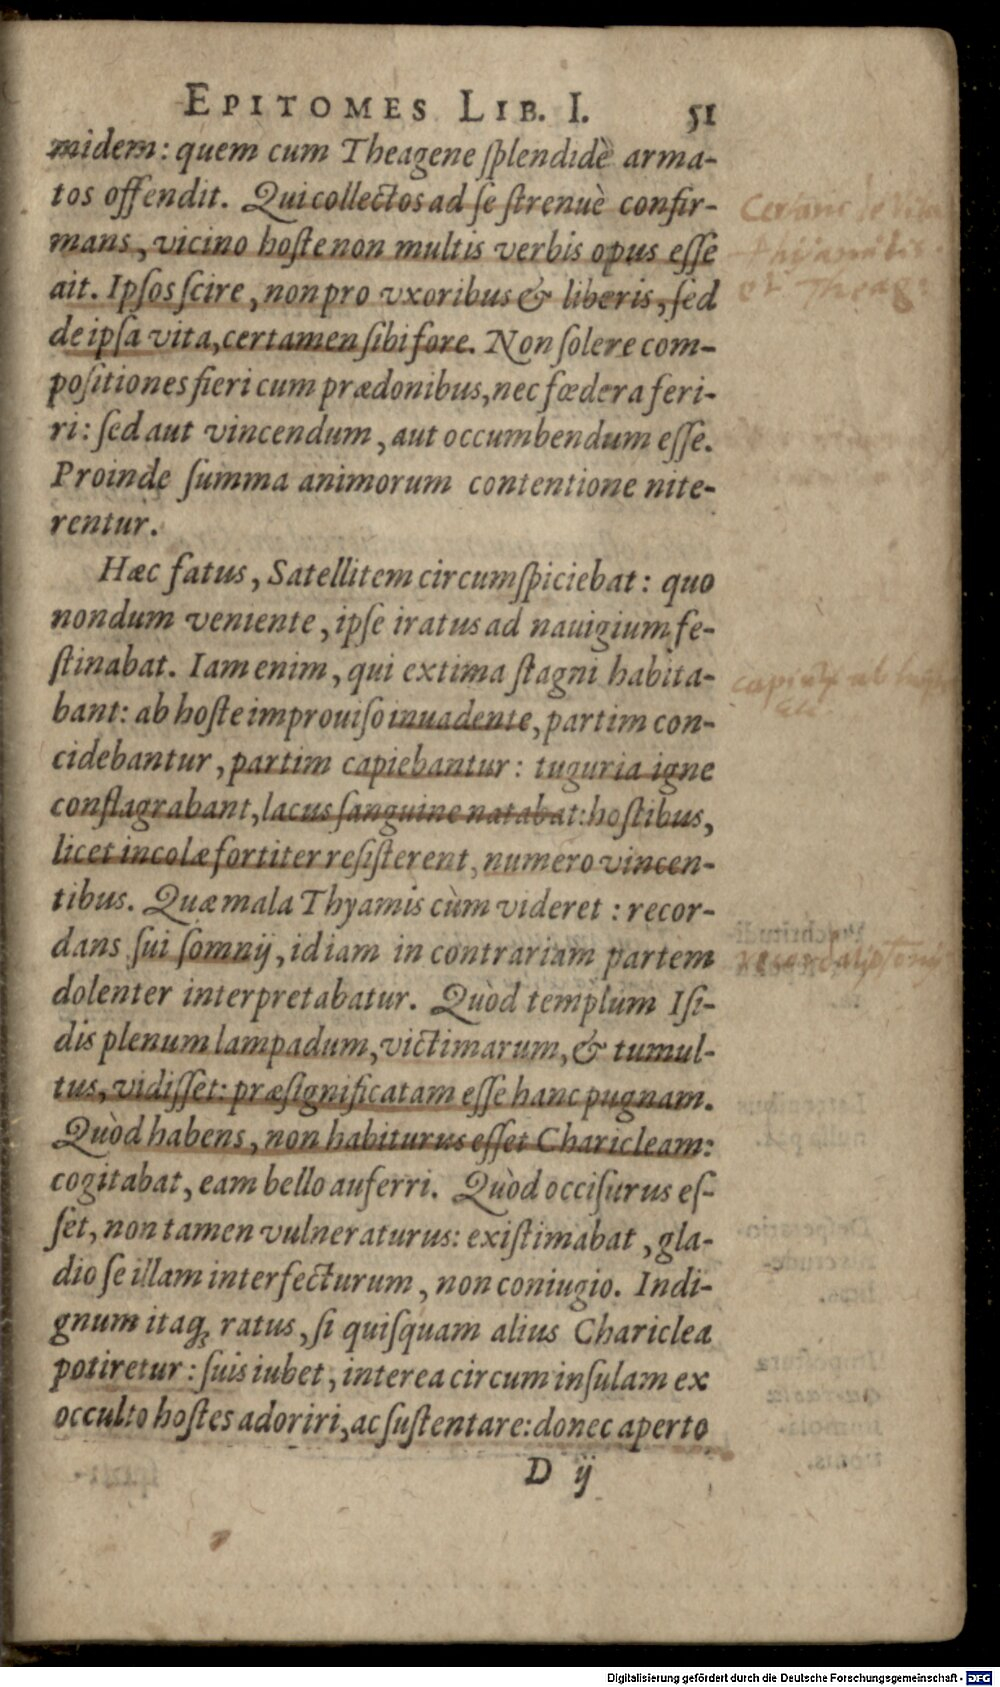 EPITOMES LIB. I. 51
midem: quem cum Theagene ſplendidè arma-
tos offendit. Qui collectos ad ſe ſtrenuè confir-
mans, vicino hoſte non multis verbis opus eſſe
ait. Ipſos ſcire, non pro vxoribus & liberis, ſed
de ipſa vita, certamen ſibi fore. Non ſolere com-
poſitiones fieri cum prædonibus, nec fœdera feri-
ri: ſed aut vincendum, aut occumbendum eſſe.
Proinde ſumma animorum contentione nite-
rentur.
Hæc fatus, Satellitem circumſpiciebat: quo
nondum veniente, ipſe iratus ad nauigium fe-
ſtinabat. Iam enim, qui extima ſtagni habita-
bant: ab hoſte improuiſo inuadente, partim con-
cidebantur, partim capiebantur: tuguria igne
conflagrabant, lacus ſanguine natabat: hoſtibus,
licet incolæ fortiter reſiſterent, numero vincen-
tibus. Quæ mala Thyamis cùm videret: recor-
dans ſui ſomnij, id iam in contrariam partem
dolenter interpretabatur. Quòd templum Iſi-
dis plenum lampadum, victimarum, & tumul-
tus, vidiſſet: præſignificatam eſſe hanc pugnam.
Quòd habens, non habiturus eſſet Charicleam:
cogitabat, eam bello auferri. Quòd occiſurus eſ-
ſet, non tamen vulneraturus: exiſtimabat, gla-
dio ſe illam interfecturum, non coniugio. Indi-
gnum itaq; ratus, ſi quiſquam alius Chariclea
potiretur: ſuis iubet, interea circum inſulam ex
occulto hoſtes adoriri, ac ſuſtentare: donec aperto
D ij
et Theag:
Digitalisierung gefördert durch die Deutsche Forschungsgemeinschaft - DFG